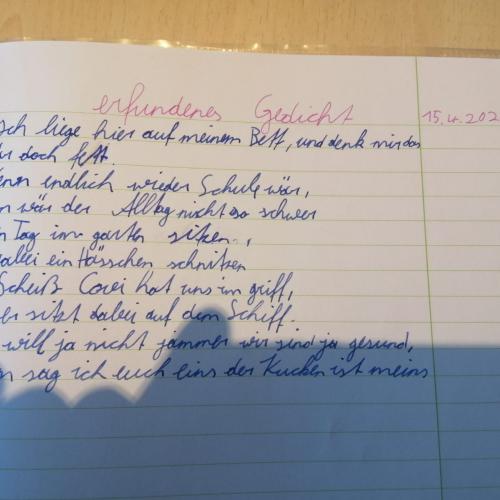 erfundenes Gedicht 15.4.202
Ich liege hier auf meinem Bett, und denk mir das
doch fett.
endlich wieder Schule wär,
wär der Alltag nicht so schwer
Tag im garten sitzen,
dabei ein Hässchen schnitzen
Scheiß Covi hat uns im griff,
er sitzt dabei auf dem Schiff.
will ja nicht jammer wir sind ja gesund,
sag ich euch eins der Kuchen ist meins